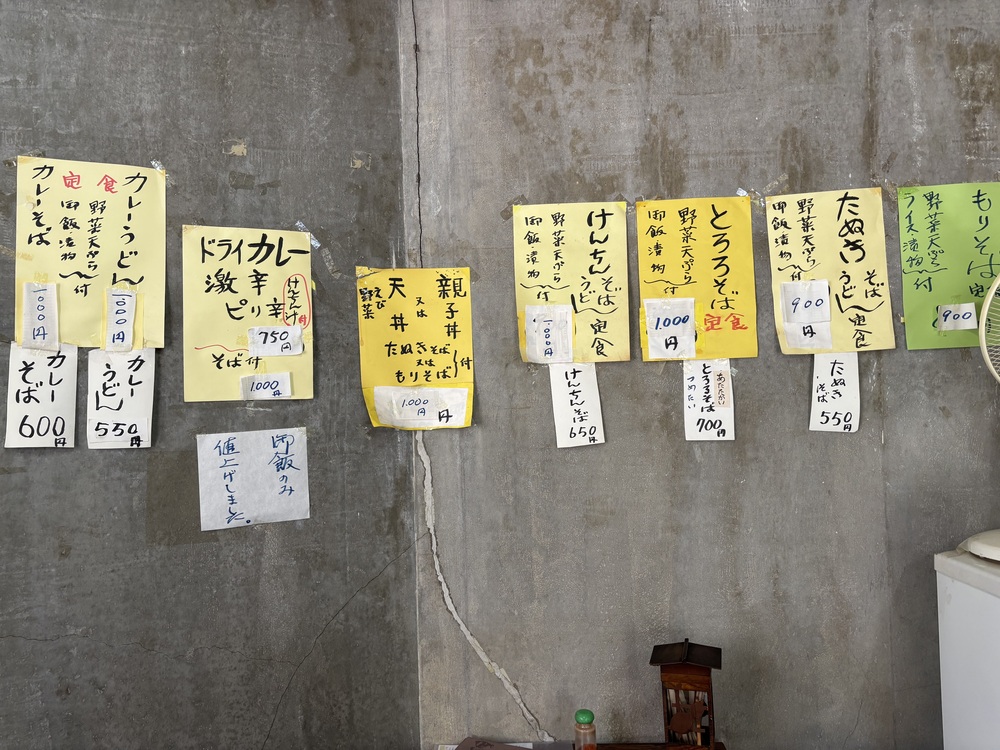 カレーうどん
カレーそば
定食
野菜天ぷら
御飯漬物
付
1000円
1000円
カレー
そば
600円
カレー
うどん
550円
ドライカレー
激辛
ピリ辛
750円
そば付
1,000円
御飯のみ
値上げしました。
親子丼
又は
天丼
えび
野菜
たぬきそば
又は
もりそば
付
1,000円
円
けんちんそば
うどん
定食
野菜天ぷら
御飯漬物
付
1,000円
けんちんそば
650円
とろろそば
定食
野菜天ぷら
御飯漬物
付
1,000円
あたたかい
とろろそば
つめたい
700円
たぬきそば
うどん
定食
野菜天ぷら
御飯漬物
付
900円
たぬき
そば
550円
もりそば
野菜天ぷら
ライス漬物
付
900